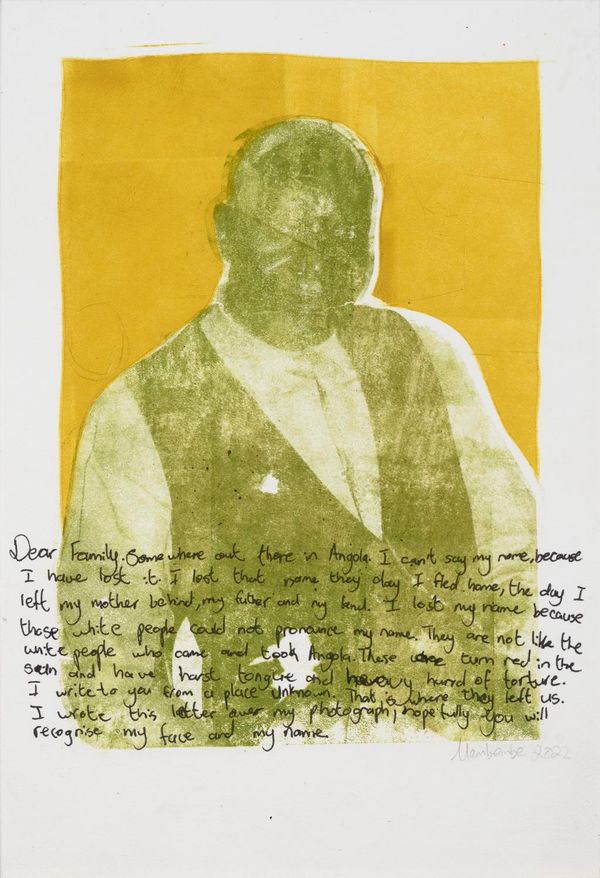 Dear Family. Somewhere out there in Angola. I can't say my name, because
I have lost it. I lost that name they day I fled home, the day I
left my mother behind, my father and my land. I lost my name because
those white people could not pronance my name. They are not like the
white people who came and took Angola. These one turn red in the
sun and have harst tongue and heavy hand of torture.
I write to you from a place unknown. That is where they left us.
I wrote this letter over my photograph, hopefully you will
recognise my face and my name
2022